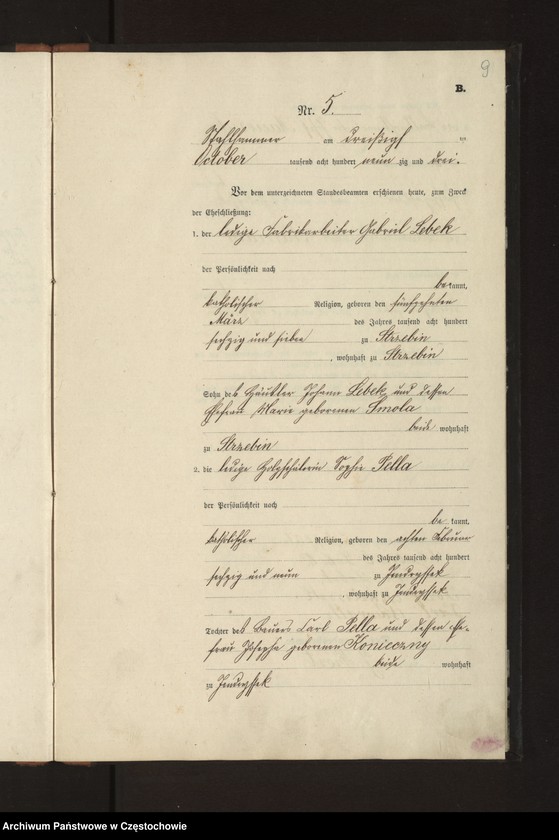 9
B.
Nr. 5.
Stahlhammer am dreißigsten
October tausend acht hundert neun zig und drei.
Vor dem unterzeichneten Standesbeamten erschienen heute, zum Zweck
der Eheschließung:
1. der ledige Fabrikarbeiter Gabriel Lebek
der Persönlichkeit nach
be kannt,
katholischer Religion, geboren den fünfzehnten
März des Jahres tausend acht hundert
sechzig und sieben zu Strzebin
, wohnhaft zu Strzebin
Sohn des Häusler Johann Lebek und dessen
Ehefrau Marie geborenen Smola
beide wohnhaft
zu Strzebin
2. die ledige Sophie Pella
der Persönlichkeit nach
be kannt,
katholischer Religion, geboren den achten Februar
des Jahres tausend acht hundert
sechzig und neun zu Jendryssek
, wohnhaft zu Jendryssek
Tochter des Bauers Carl Pella und dessen Ehe-
frau Josepha geborenen Konieczny
beide wohnhaft
zu Jendryssek
Archiwum Państwowe w Częstochowie